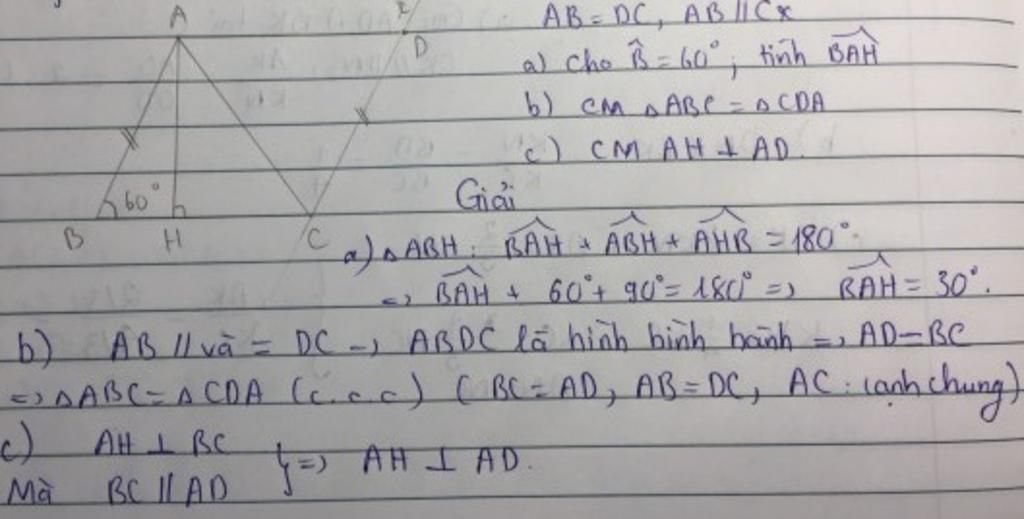 A
D
AB = DC, AB // Cx
a) Cho B̂ = 60°; tính B͡AH
b) CM △ABC = △CDA
c) CM AH ⊥ AD.
60°
B H C
Giải
a) △ABH: B͡AH + A͡BH + A͡HB = 180°.
=> B͡AH + 60° + 90° = 180° => B͡AH = 30°.
b) AB // và = DC -> ABDC là hình bình hành => AD = BC
=> △ABC = △CDA (c.c.c) (BC = AD, AB = DC, AC: cạnh chung)
c) AH ⊥ BC
Mà BC // AD } => AH ⊥ AD.